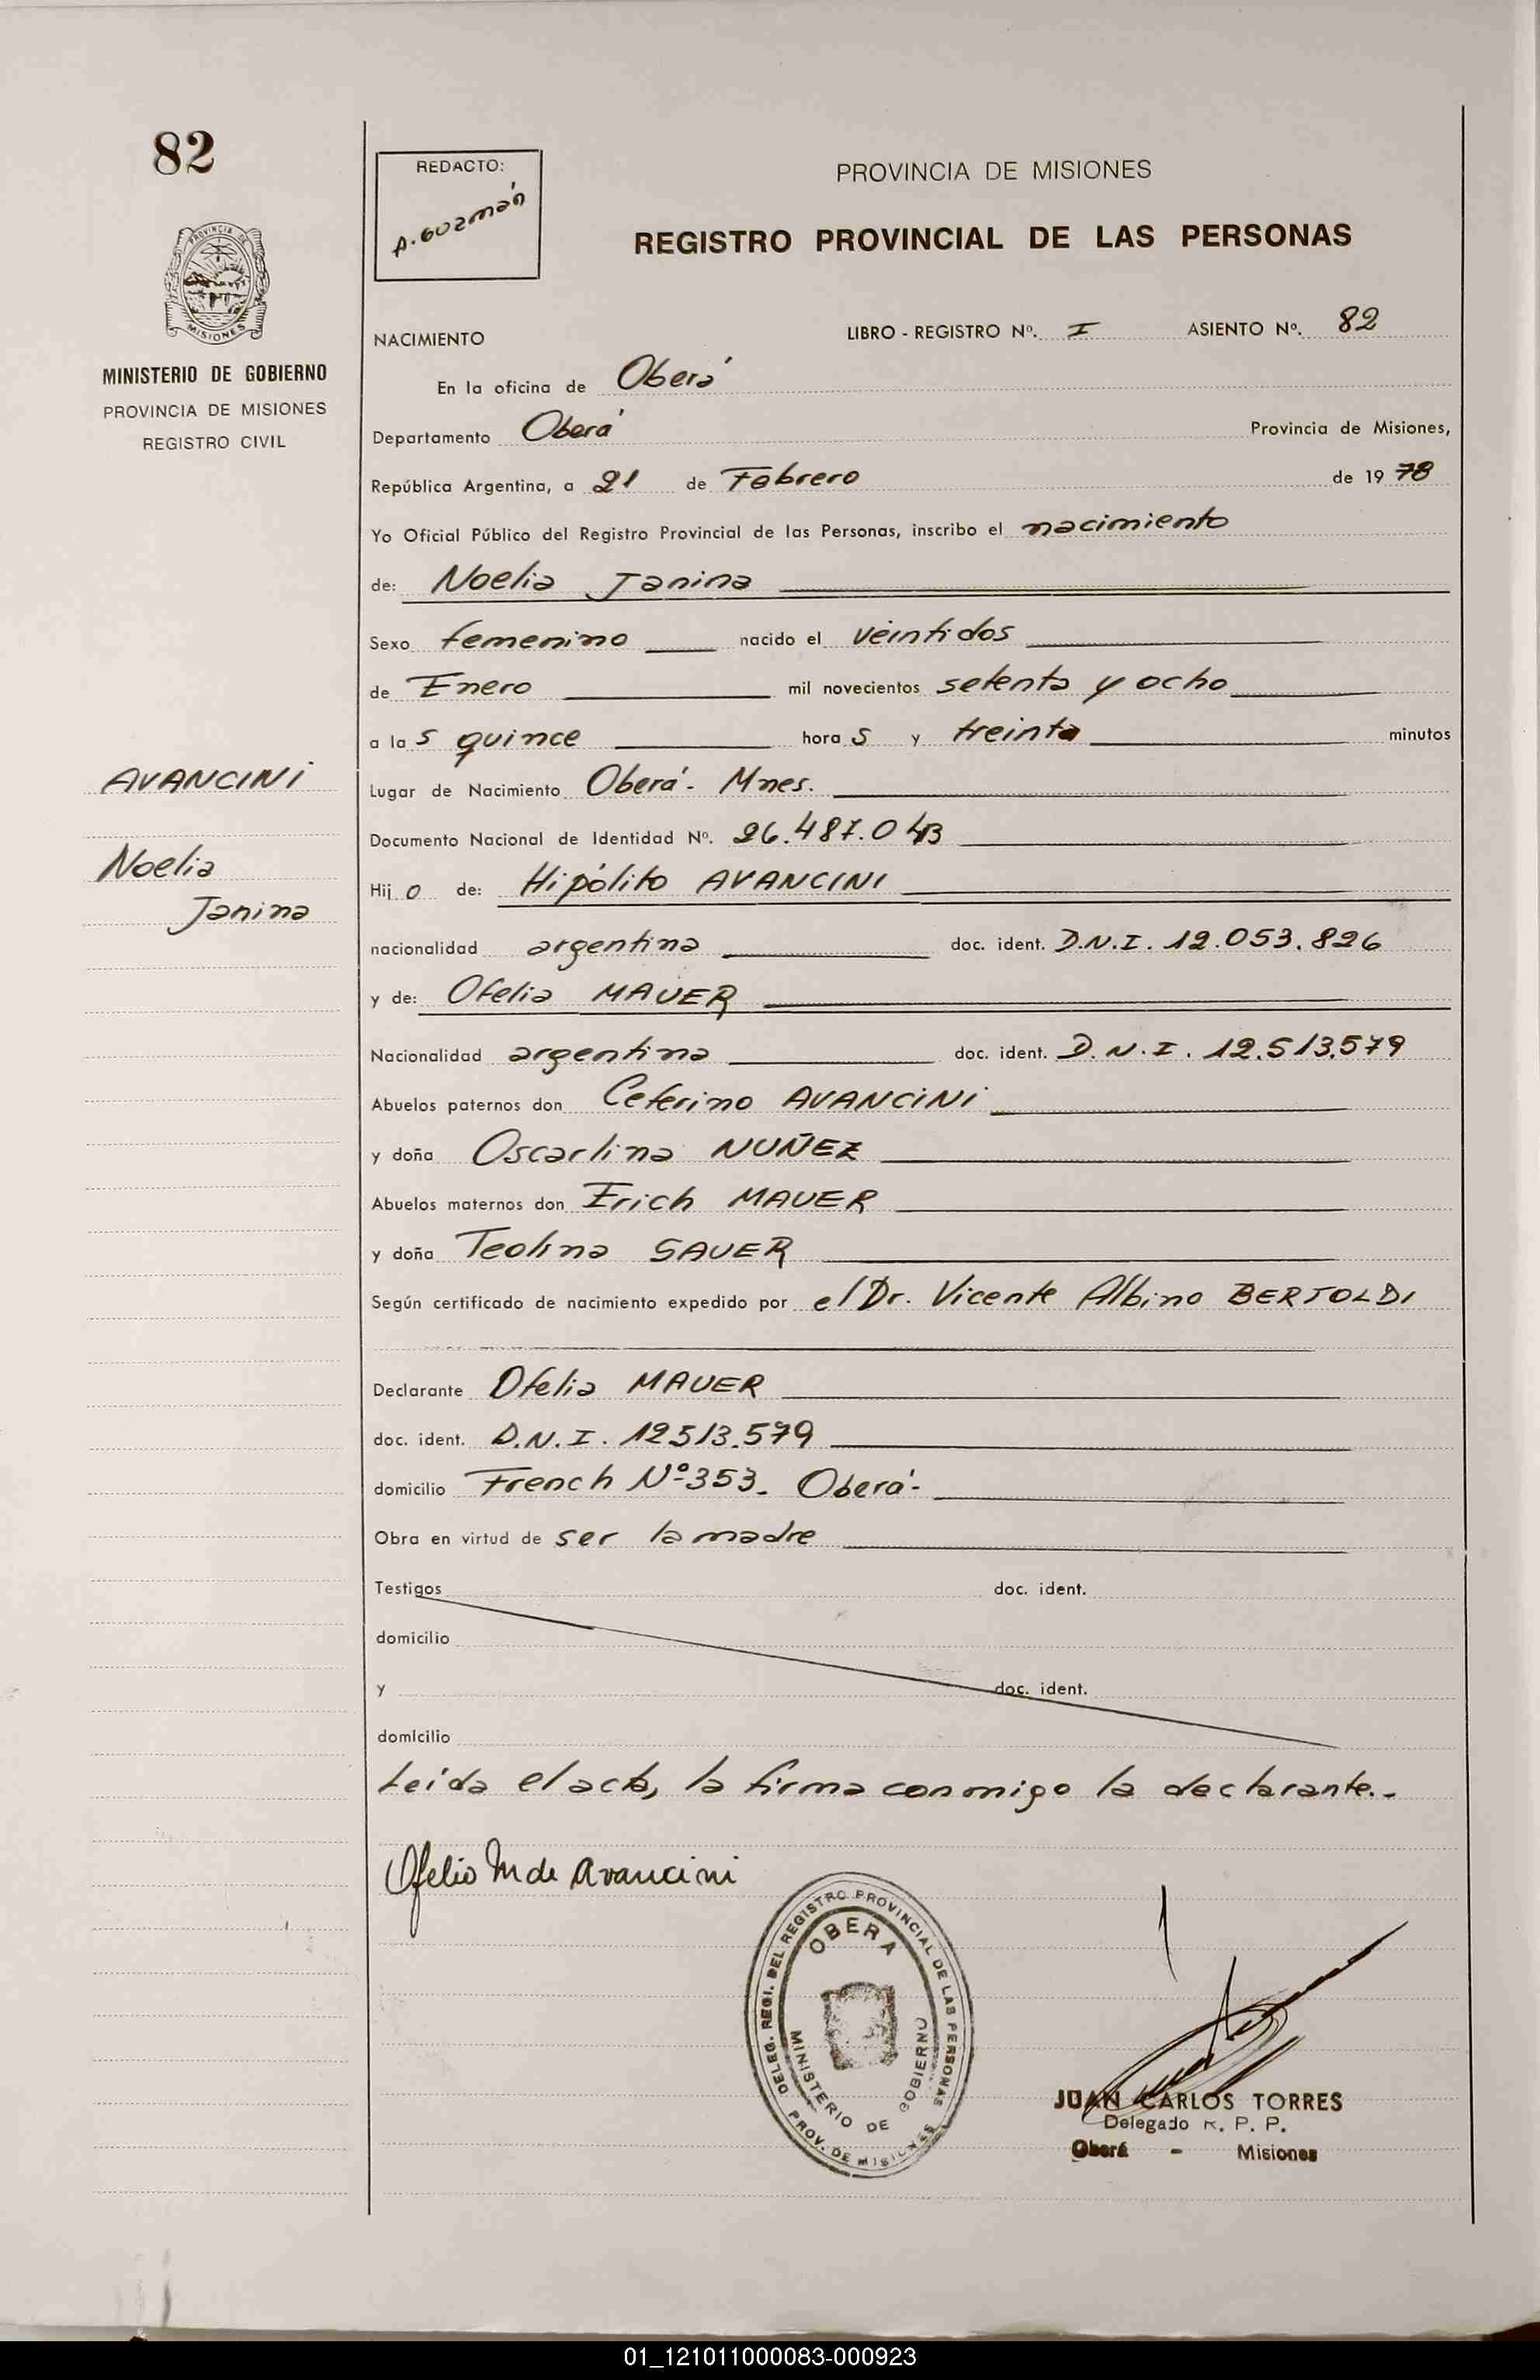 82
PROVINCIA DE
MISIONES
MINISTERIO DE GOBIERNO
PROVINCIA DE MISIONES
REGISTRO CIVIL
AVANCINI
Noelia
Janina
REDACTO:
A. Guzmán
PROVINCIA DE MISIONES
REGISTRO PROVINCIAL DE LAS PERSONAS
NACIMIENTO LIBRO - REGISTRO Nº. I ASIENTO Nº. 82
En la oficina de Oberá
Departamento Oberá Provincia de Misiones,
República Argentina, a 21 de Febrero de 19 78
Yo Oficial Público del Registro Provincial de las Personas, inscribo el nacimiento
de: Noelia Janina
Sexo femenino nacido el veintidos
de Enero mil novecientos setenta y ocho
a la s quince hora s y treinta minutos
Lugar de Nacimiento Oberá - Mnes.
Documento Nacional de Identidad Nº. 26.487.043
Hij o de: Hipólito AVANCINI
nacionalidad argentina doc. ident. D.N.I. 12.053.826
y de: Ofelia MAUER
Nacionalidad argentina doc. ident. D.N.I. 12.513.579
Abuelos paternos don Ceferino AVANCINI
y doña Oscarlina NUÑEZ
Abuelos maternos don Erich MAUER
y doña Teolina SAUER
Según certificado de nacimiento expedido por el Dr. Vicente Albino BERTOLDI
Declarante Ofelia MAUER
doc. ident. D.N.I. 12513.579
domicilio French Nº 353. Oberá-
Obra en virtud de ser la madre
Testigos doc. ident.
domicilio
y doc. ident.
domicilio
Leída el acta, la firma conmigo la declarante.-
Ofelia M de Avancini
DELEG. REGI. DEL REGISTRO PROVINCIAL DE LAS PERSONAS
OBERA
MINISTERIO DE GOBIERNO
PROV. DE MISIONES
JUAN CARLOS TORRES
Delegado R. P. P.
Oberá - Misiones
01_121011000083-000923